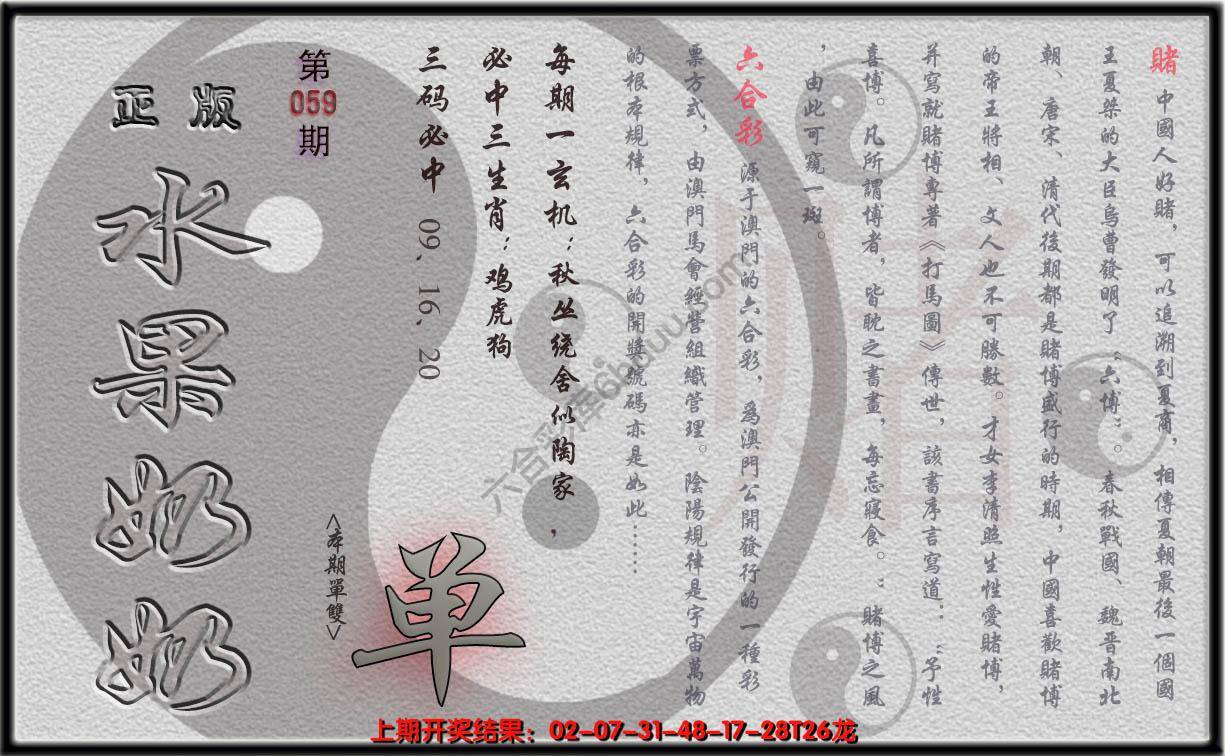 賭 中國人好賭，可以追溯到夏商，相傳夏朝最後一個國
王夏桀的大臣烏曹發明了“六博”。春秋戰國、魏晋南北
朝、唐宋、清代後期都是賭博盛行的時期，中國喜歡賭博
的帝王將相、文人也不可勝數。才女李清照生性愛賭博，
并寫就賭博專著《打馬圖》傳世，該書序言寫道：“予性
喜博。凡所謂博者，皆耽之書畫，每忘寢食。”賭博之風
，由此可窺一斑。
六合彩 源于澳門的六合彩，爲澳門公開發行的一種彩
票方式，由澳門馬會經營組織管理。陰陽規律是宇宙萬物
的根本規律，六合彩的開獎號碼亦是如此……
每期一玄机：秋丛绕舍似陶家，
必中三生肖：鸡虎狗
三码必中 09、16、20
第
059
期
正版
水果奶奶
<本期單雙>
单
賭
六合彩库6huuu.com
上期开奖结果：02-07-31-48-17-28T26龙